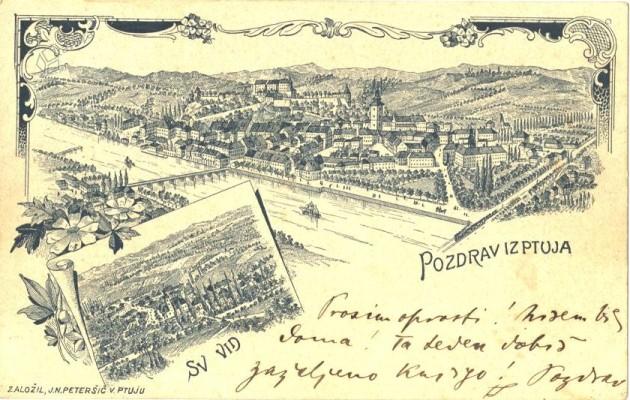 POZDRAV IZ PTUJA
Prosim oprosti! Nisem bil
doma! Ta teden dobiš
zaželjeno knjigo! Pozdrav
SV VID
ZALOŽIL, J.N. PETERŠIČ V PTUJU